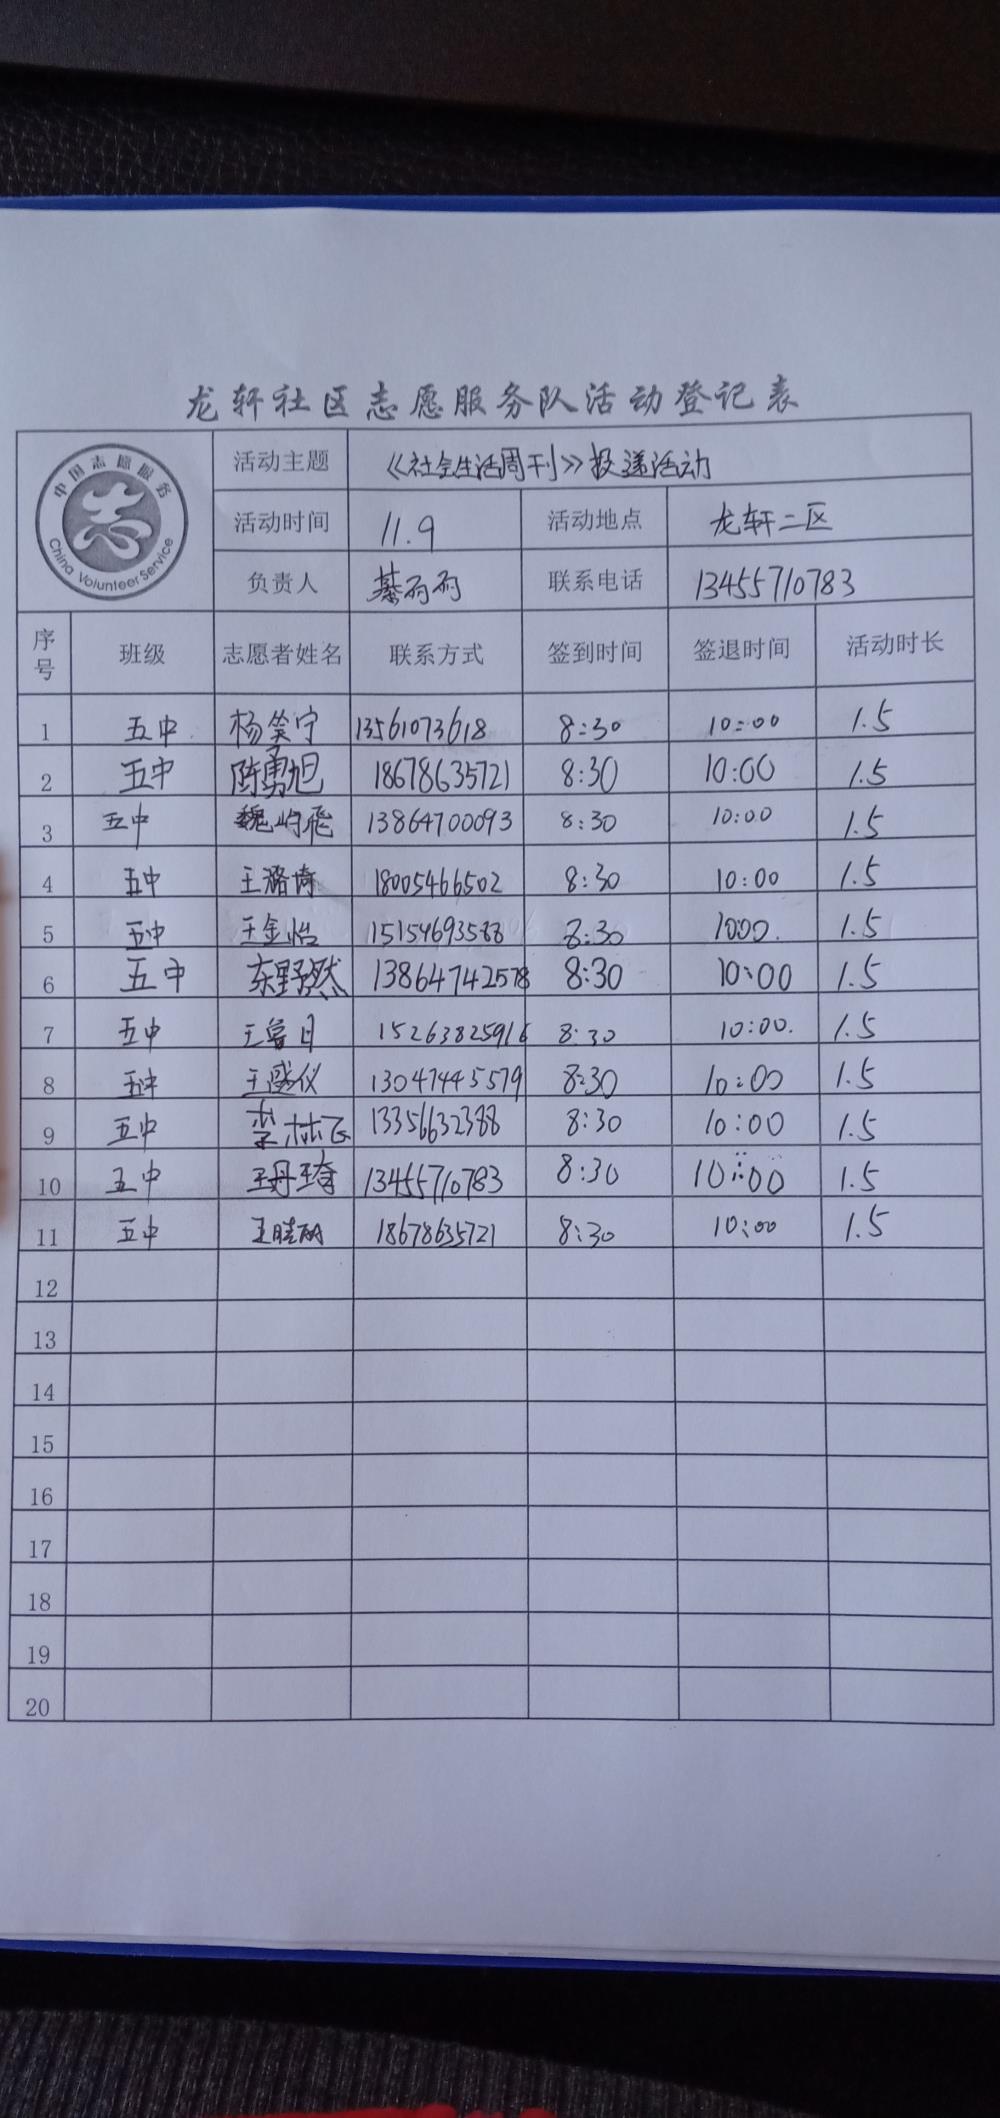 龙轩社区志愿服务队活动登记表
中国志愿服务
志
China Volunteer Service
活动主题 《社会生活周刊》投递活动
活动时间 11.9 活动地点 龙轩二区
负责人 綦雨雨 联系电话 13455710783
序号 班级 志愿者姓名 联系方式 签到时间 签退时间 活动时长
1 五中 杨笑宁 13561073618 8:30 10:00 1.5
2 五中 陈勇旭 18678635721 8:30 10:00 1.5
3 五中 魏屿飛 13864700093 8:30 10:00 1.5
4 五中 王潞琦 18005466502 8:30 10:00 1.5
5 五中 王金怡 15154693588 8:30 1000. 1.5
6 五中 东野燃 13864742578 8:30 10:00 1.5
7 五中 王鲁日 15263825916 8:30 10:00. 1.5
8 五中 王盛仪 13047445579 8:30 10:00 1.5
9 五中 李林飞 13356632388 8:30 10:00 1.5
10 五中 王丹琦 13455710783 8:30 10:00 1.5
11 五中 王 18678635721 8:30 10:00 1.5
12
13
14
15
16
17
18
19
20